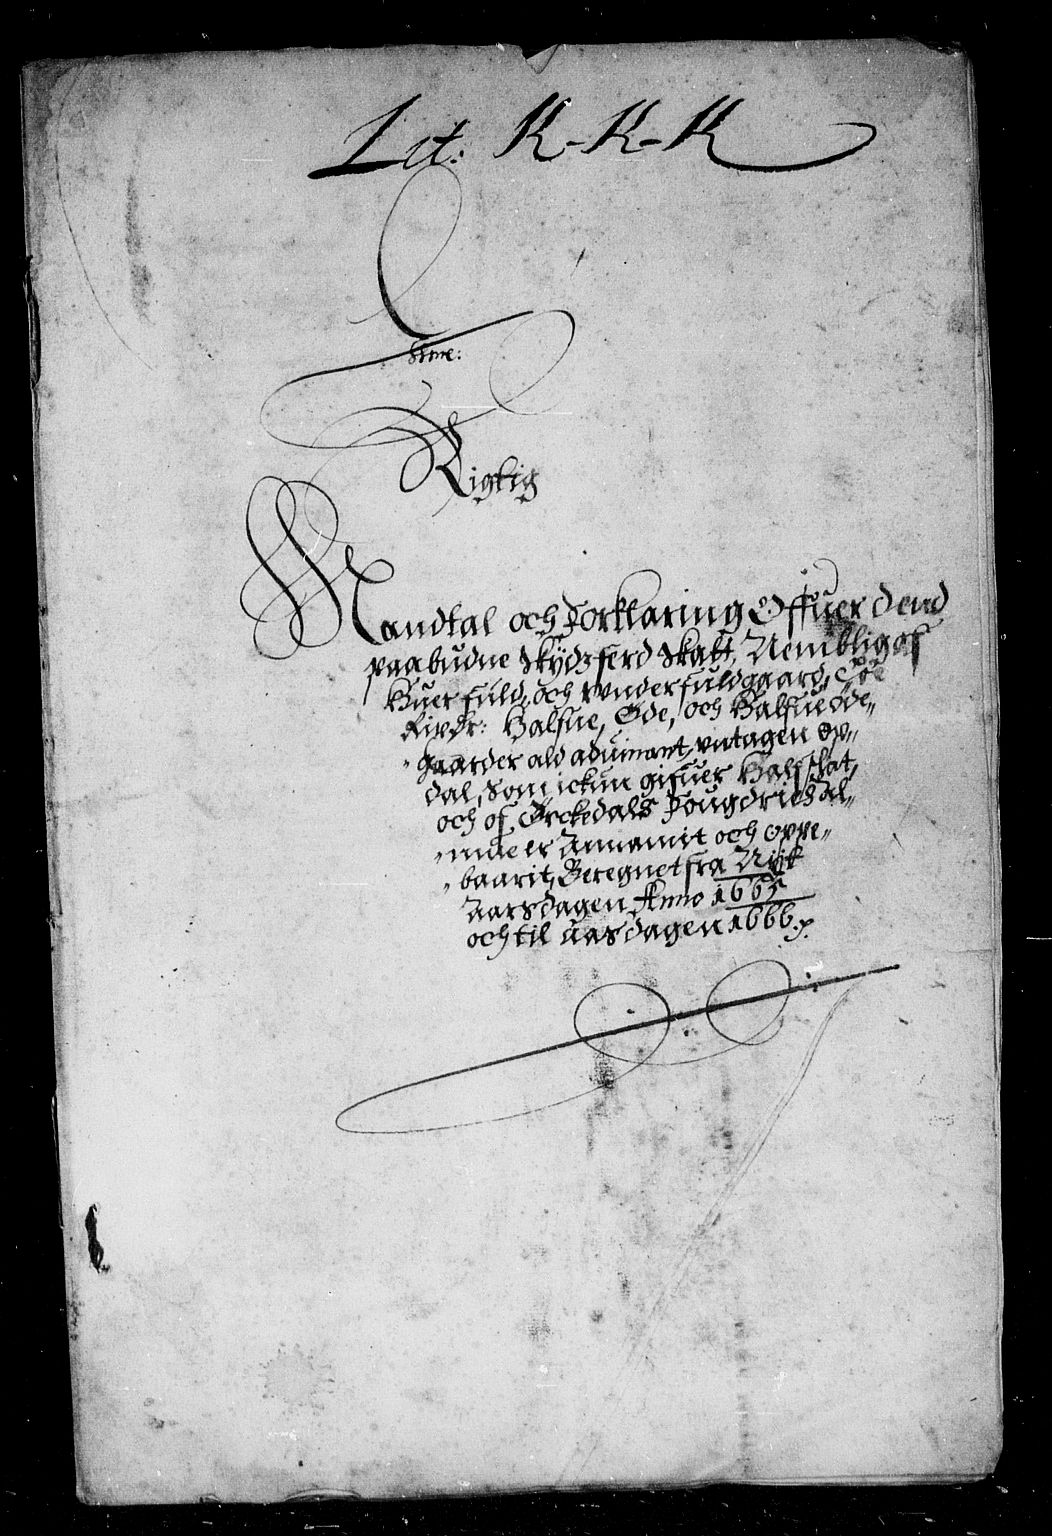 Lit: K-K-K
Rigtig
Mandtal och Forklaring Offuer dend
paabudne Skydzferd Skatt, Nemblig af
Huer fuld, och tynder fuldgaard, Toe
Rixdr: Halfue, Øde, och Halfue øde„
„gaarder ald aduinant, vntagen Op„
dal, Som ickun gifuer Half skat,
och af Ørckedals Fougdrie
„nne er Annamit och oppe„
„baarit, Beregnet fra Nyt
Aarsdagen Anno 1665
och til Aarsdagen 1666.